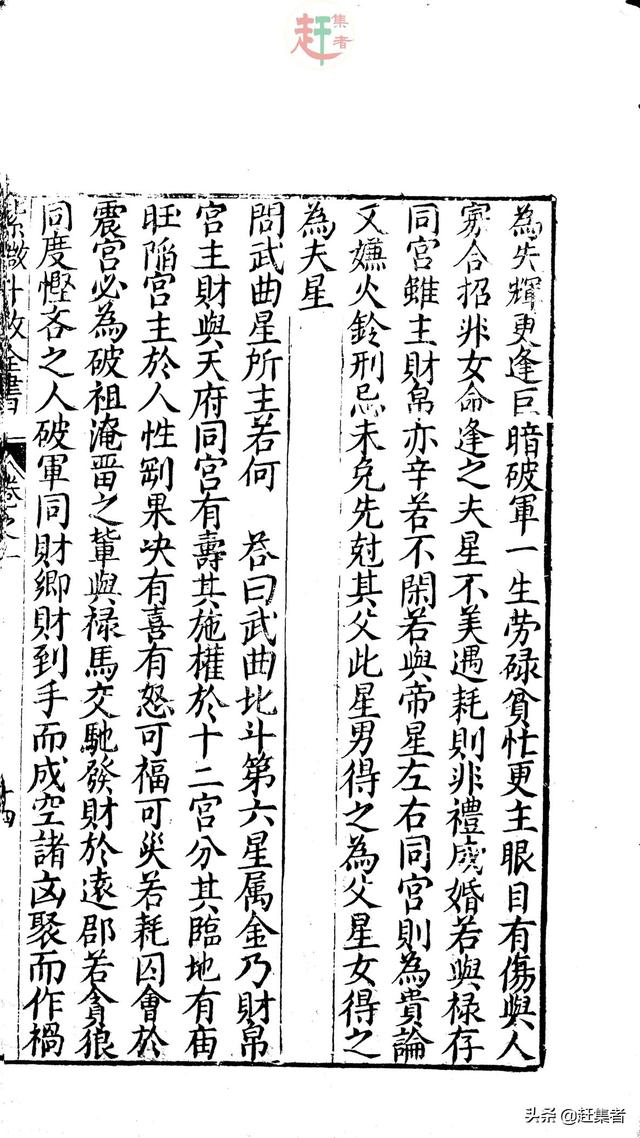 赶集者
為失輝更逢巨暗破軍一生劳碌貧忙更主眼目有傷與人
寡合招非女命逢之夫星不美遇耗則非禮成婚若與禄存
同宫雖主財帛亦辛若不閑若與帝星左右同宫則為貴論
又嫌火鈴刑忌未免先尅其父此星男得之為父星女得之
為夫星
問武曲星所主若何 答曰武曲北斗第六星属金乃財帛
宫主財與天府同宫有壽其施權於十二宫分其臨地有庙
旺陷宫主於人性剛果决有喜有怒可福可災若耗囚會於
震宫必為破祖淹畱之輩與禄馬交馳發財於遠郡若貪狼
同度慳吝之人破軍同財鄉財到手而成空諸凶聚而作禍
紫微斗数全書 卷之一 十四
头条 @赶集者